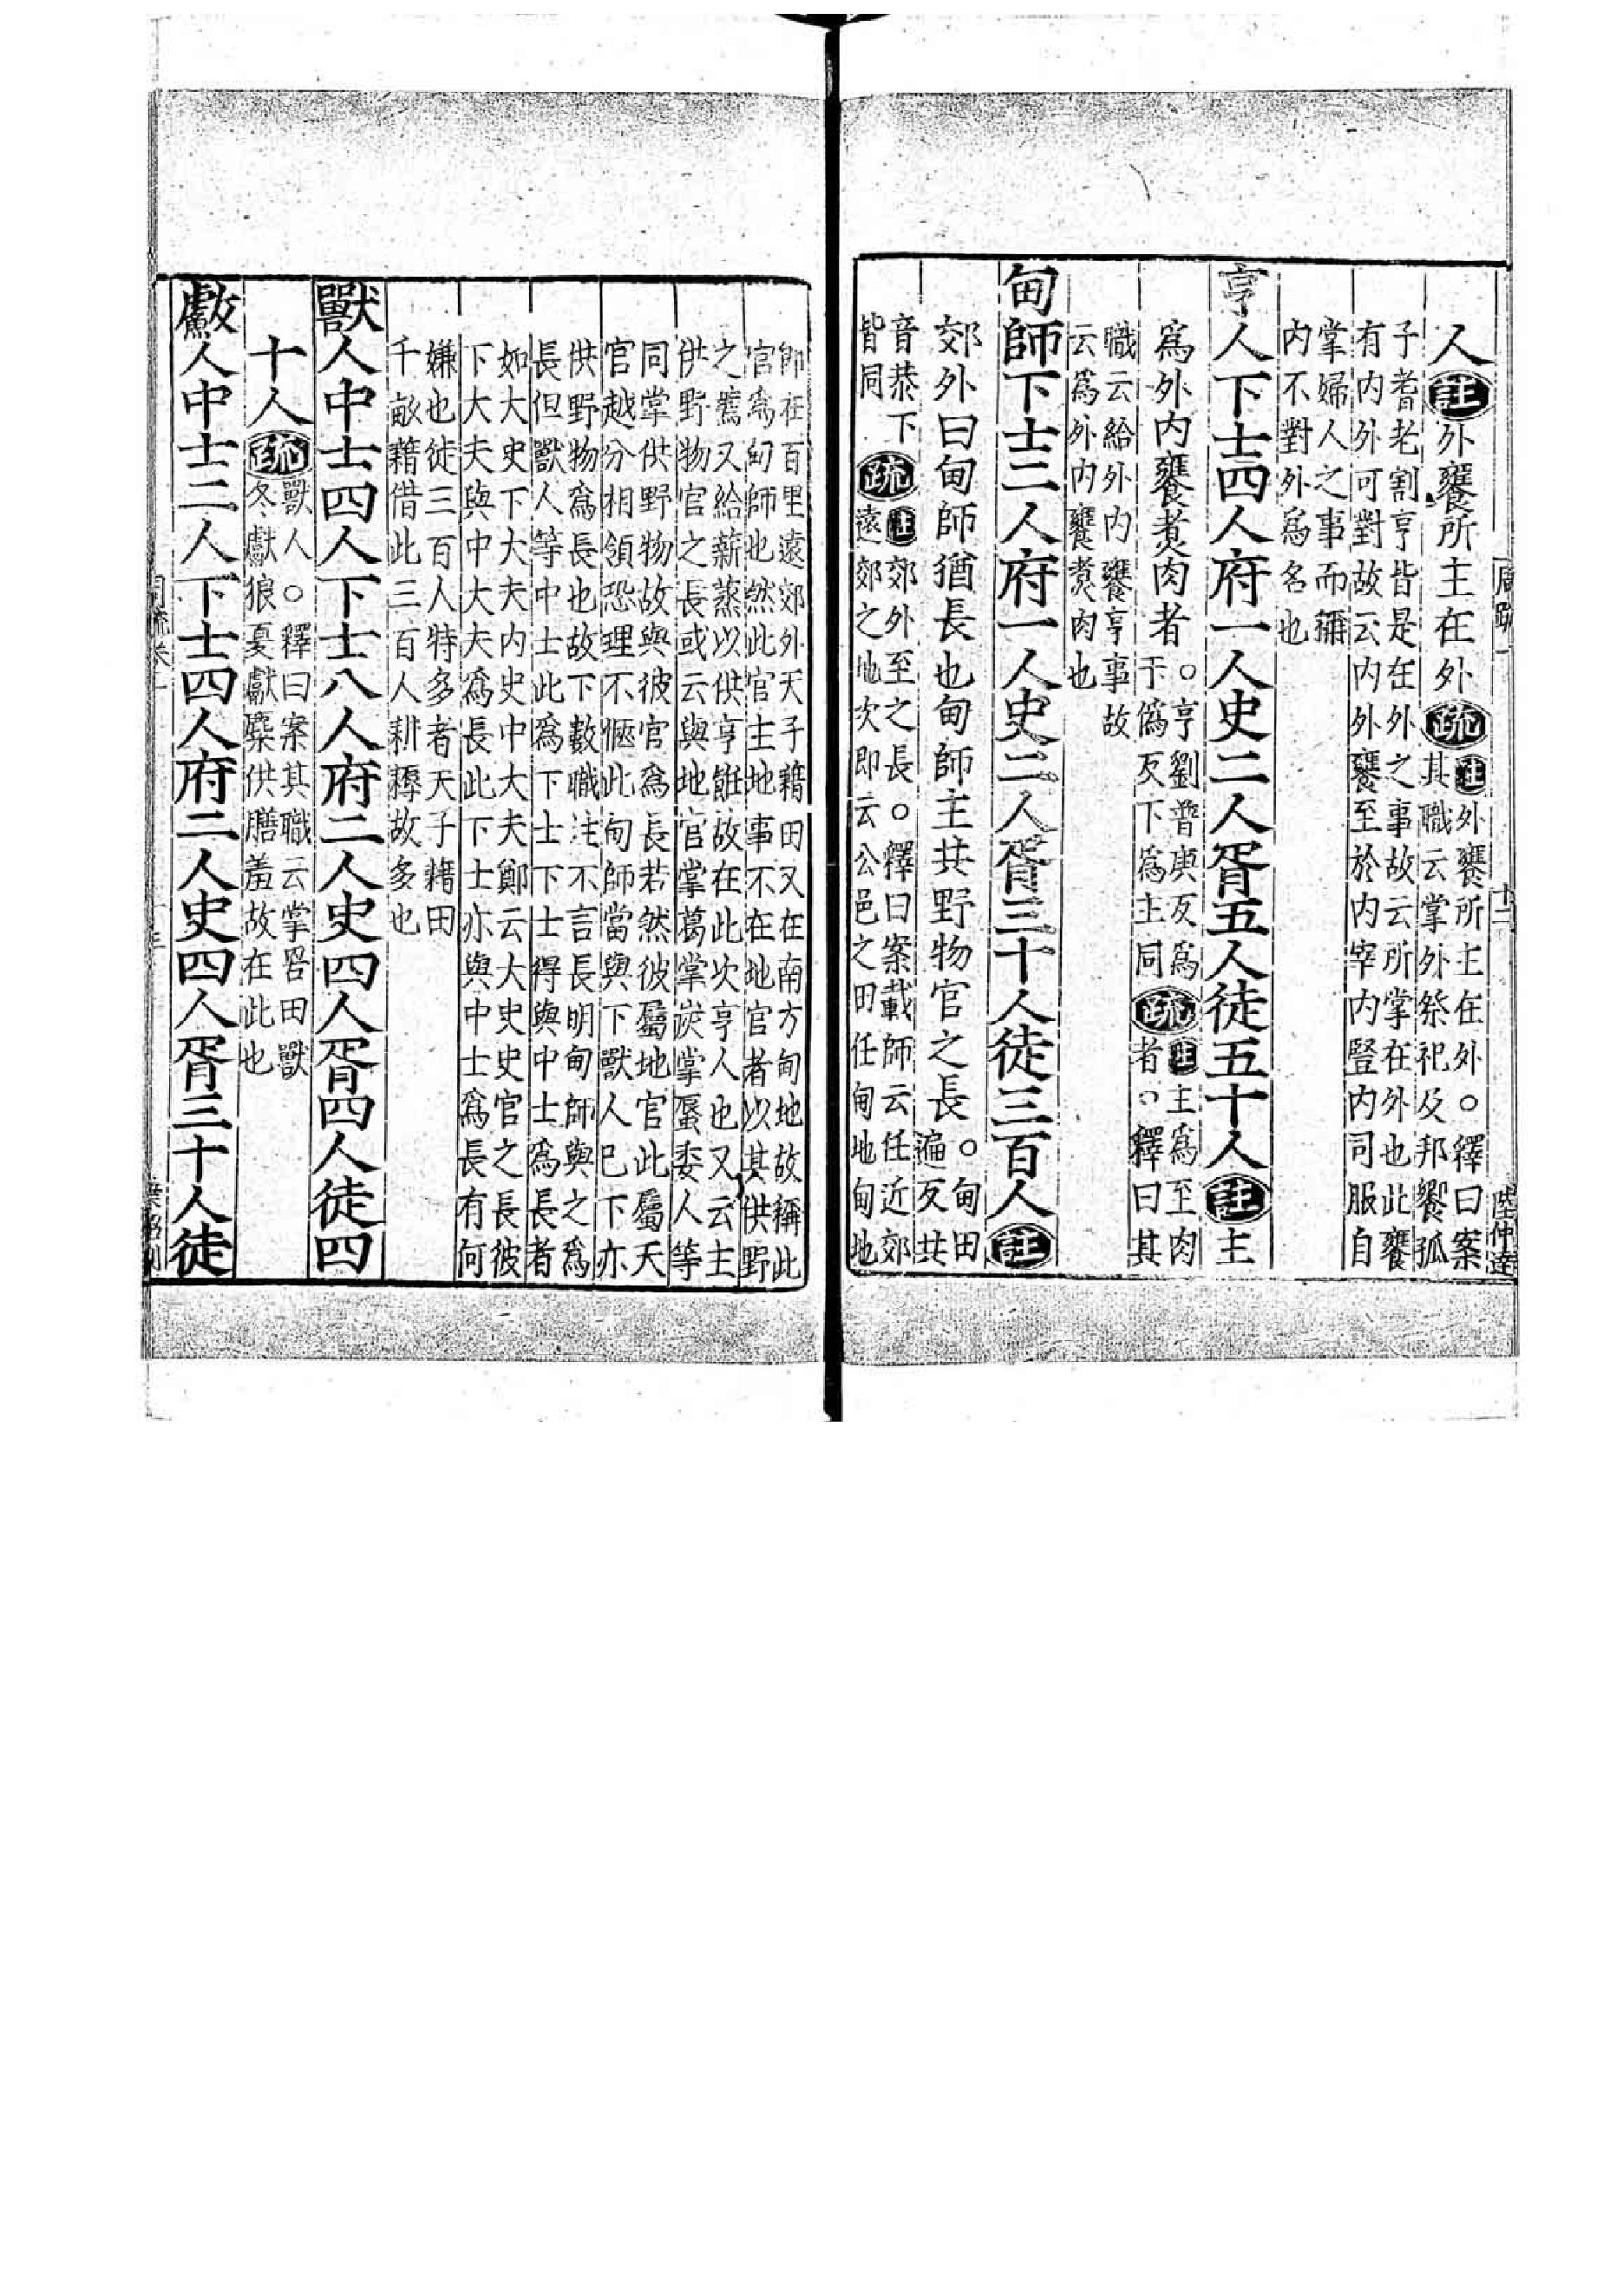 周䟽一 十二 陸仲達
人註外饔所主在外疏註外饔所主在外○釋曰案
其職云掌外祭祀及邦饗孤
子耆老割亨皆是在外之事故云所掌在外也此饔
有内外可對故云内外饔至於内宰内豎内司服自
掌婦人之事而稱
内不對外爲名也
亨人下士四人府一人史二人胥五人徒五十人註主
爲外内饔煑肉者○亨劉普庚反爲
于僞反下爲主同疏註主爲至肉
者○釋曰其
職云給外内饔亨事故
云爲外内饔煑肉也
甸師下士二人府一人史二人胥三十人徒三百人註
郊外曰甸師猶長也甸師主共野物官之長○甸田
遍反共
音恭下
皆同疏註郊外至之長○釋曰案載師云任近郊
遠郊之地次即云公邑之田任甸地甸地
即在百里遠郊外天子藉田又在南方甸地故稱此
官爲甸師也然此官主地事不在地官者以其供野
之薦又給薪蒸以供亨飪故在此次亨人也又云主
供野物官之長或云與地官掌葛掌炭掌蜃委人等
同掌供野物故與彼官爲長若然彼屬地官此屬天
官越分相領恐理不愜此甸師當與下獸人已下亦
供野物爲長也故下數職注不言長明甸師與之爲
長但獸人等中士此爲下士下士得與中士爲長者
如大史下大夫内史中大夫鄭云大史史官之長彼
下大夫與中大夫爲長此下士亦與中士爲長有何
嫌也徒三百人特多者天子藉田
千畝藉借此三百人耕耨故多也
獸人中士四人下士八人府二人史四人胥四人徒四
十人疏獸人○釋曰案其職云掌罟田獸
冬獻狼夏獻麋供膳羞故在此也
䱷人中士二人下士四人府二人史四人胥三十人徒